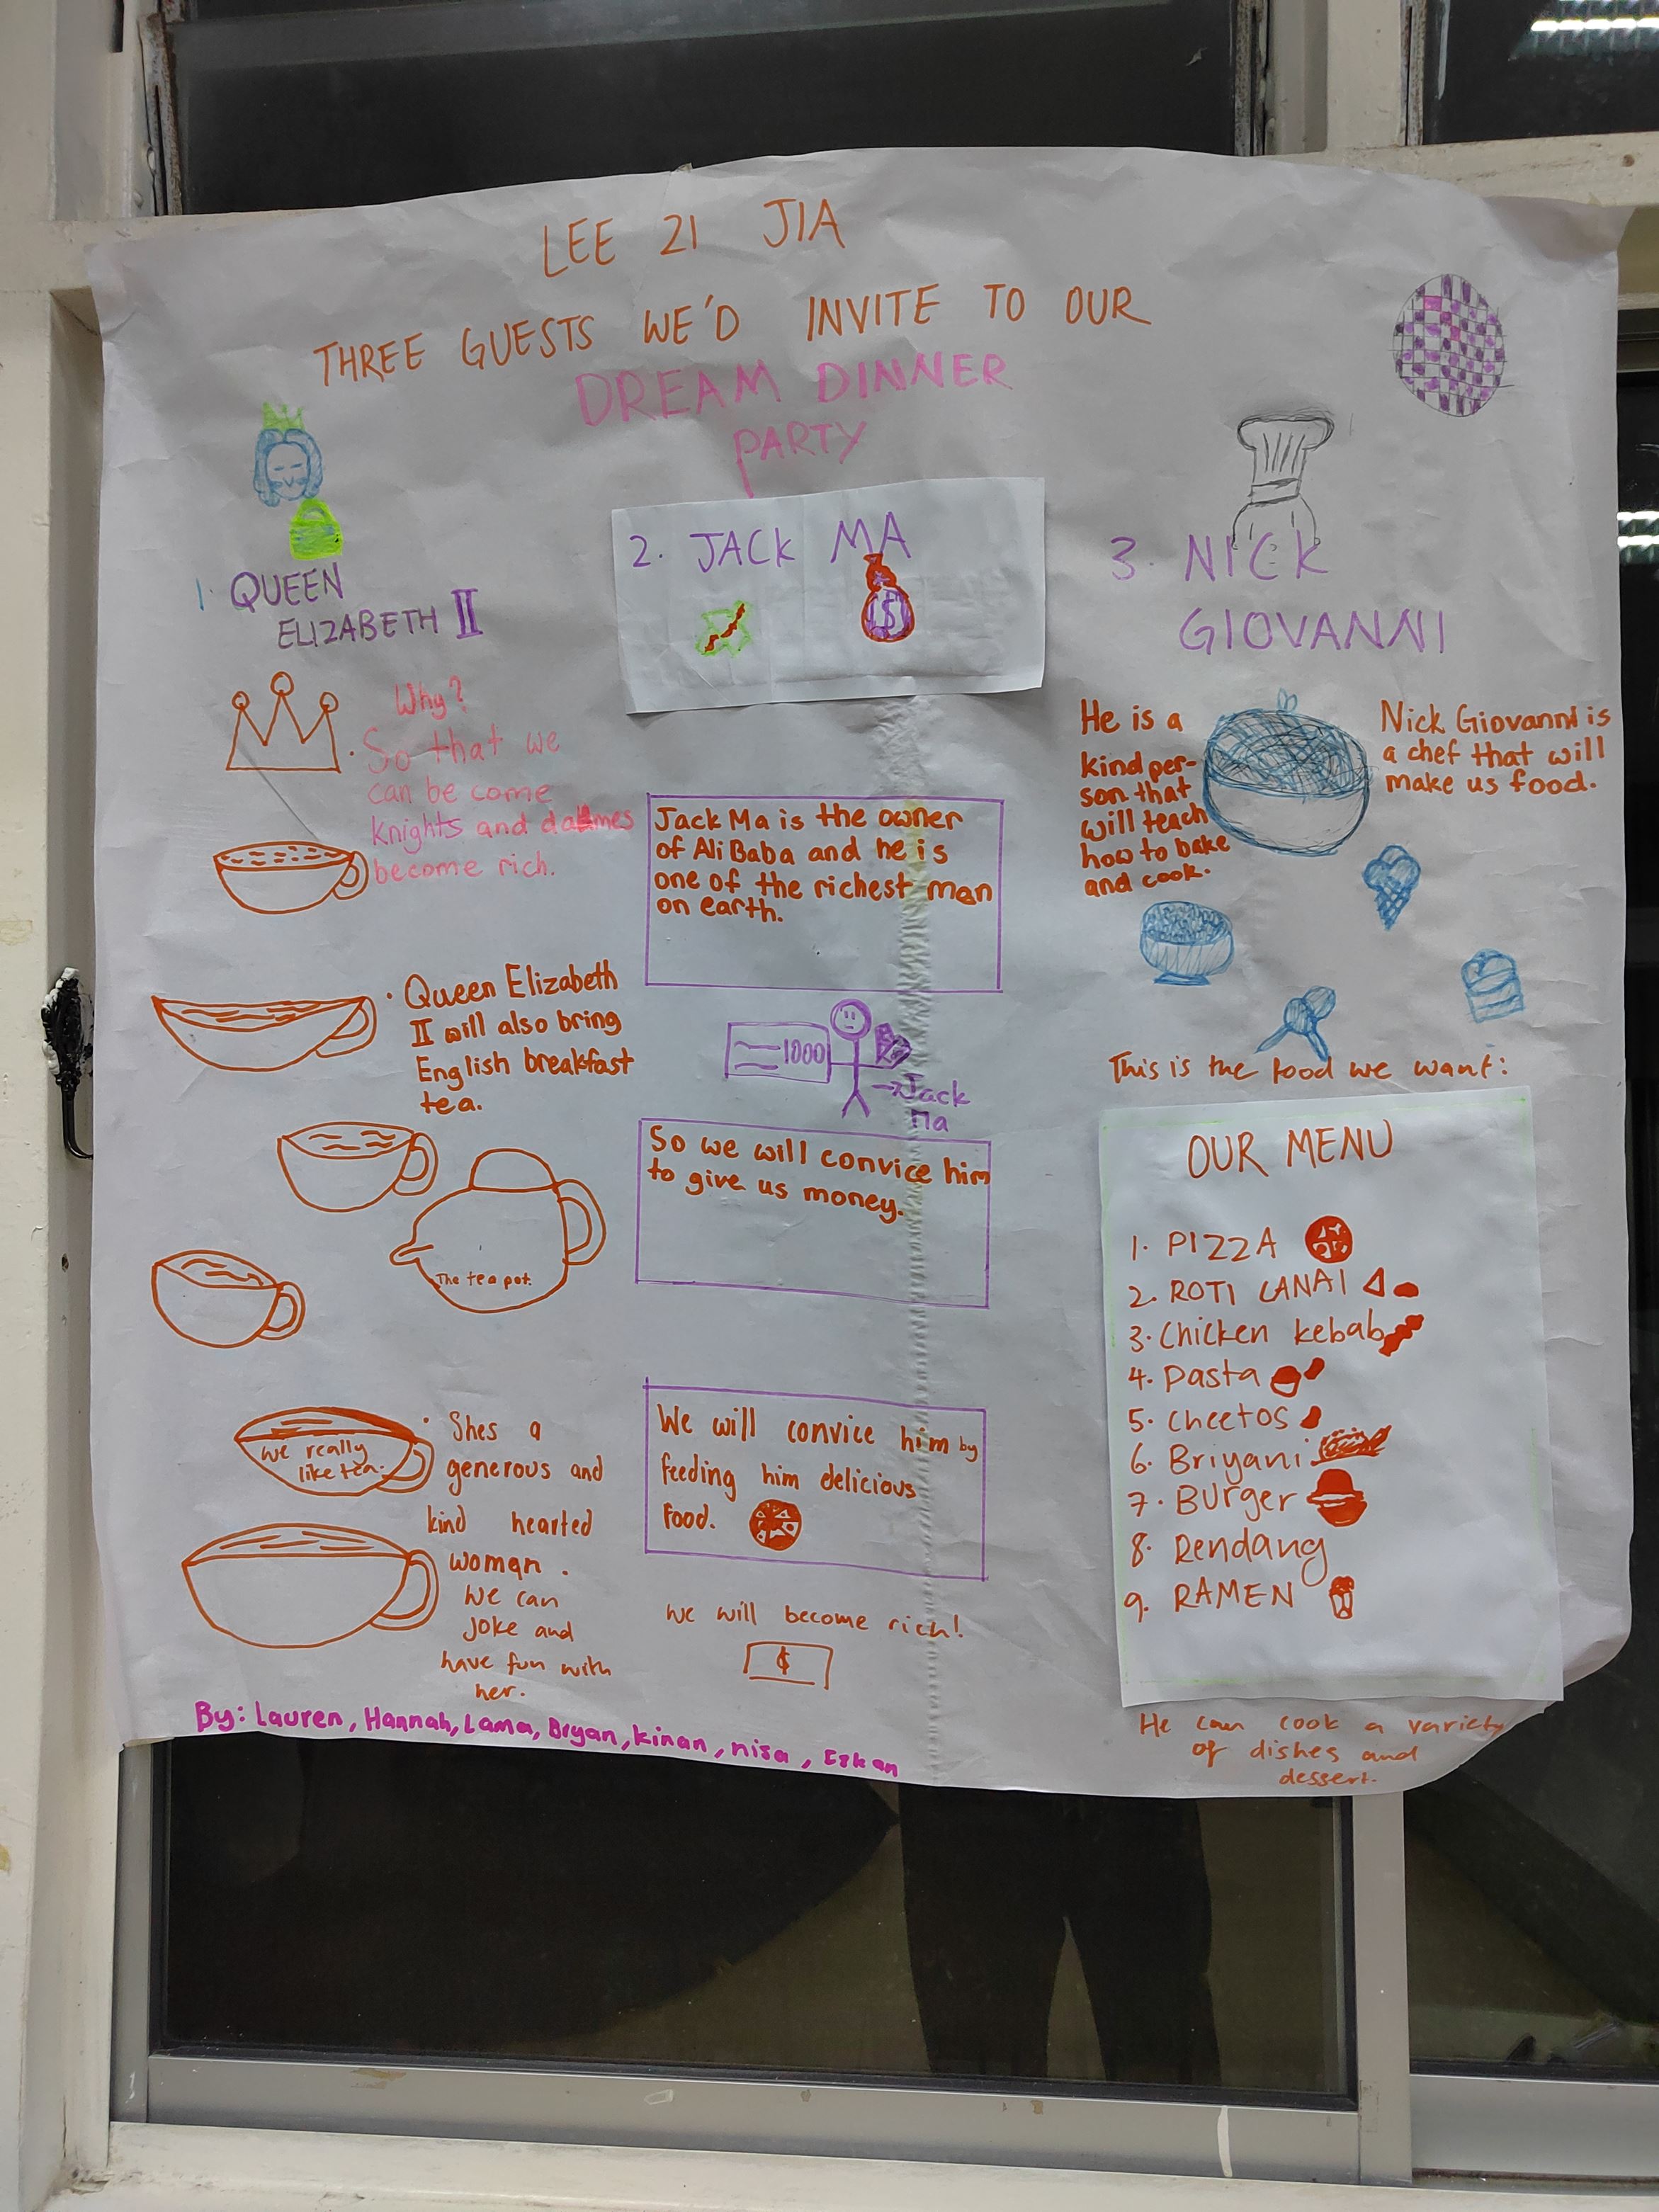 LEE 21 JIA
THREE GUESTS WE'D INVITE TO OUR
DREAM DINNER
PARTY
1. QUEEN
ELIZABETH II
Why?
So that we
can be come
knights and dames
become rich.
Queen Elizabeth
II will also bring
English breakfast
tea.
The tea pot.
we really
like tea.
Shes a
generous and
kind hearted
woman.
we can
joke and
have fun with
her.
2. JACK MA
$
Jack Ma is the owner
of Ali Baba and he is
one of the richest man
on earth.
1000
Jack
Ma
So we will convice him
to give us money.
We will convice him by
feeding him delicious
food.
we will become rich!
$
3. NICK
GIOVANNI
He is a
kind per-
son that
will teach
how to bake
and cook.
Nick Giovanni is
a chef that will
make us food.
This is the food we want:
OUR MENU
1. PIZZA
2. ROTI CANAI
3. Chicken kebab
4. Pasta
5. cheetos
6. Briyani
7. Burger
8. Rendang
9. RAMEN
He can cook a variety
of dishes and
dessert.
By: Lauren, Hannah, Lama, Bryan, kinan, nisa,